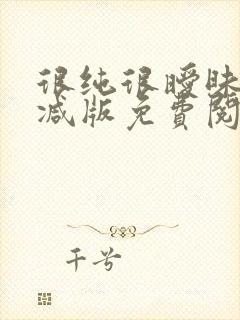 很纯很暧昧
减版免费阅
千兮